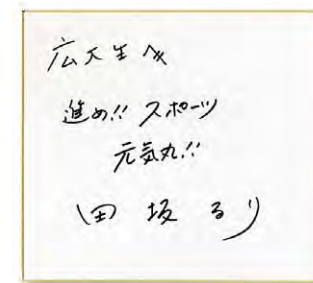 広大生へ
進め!! スポーツ
元気丸!!
田坂るり